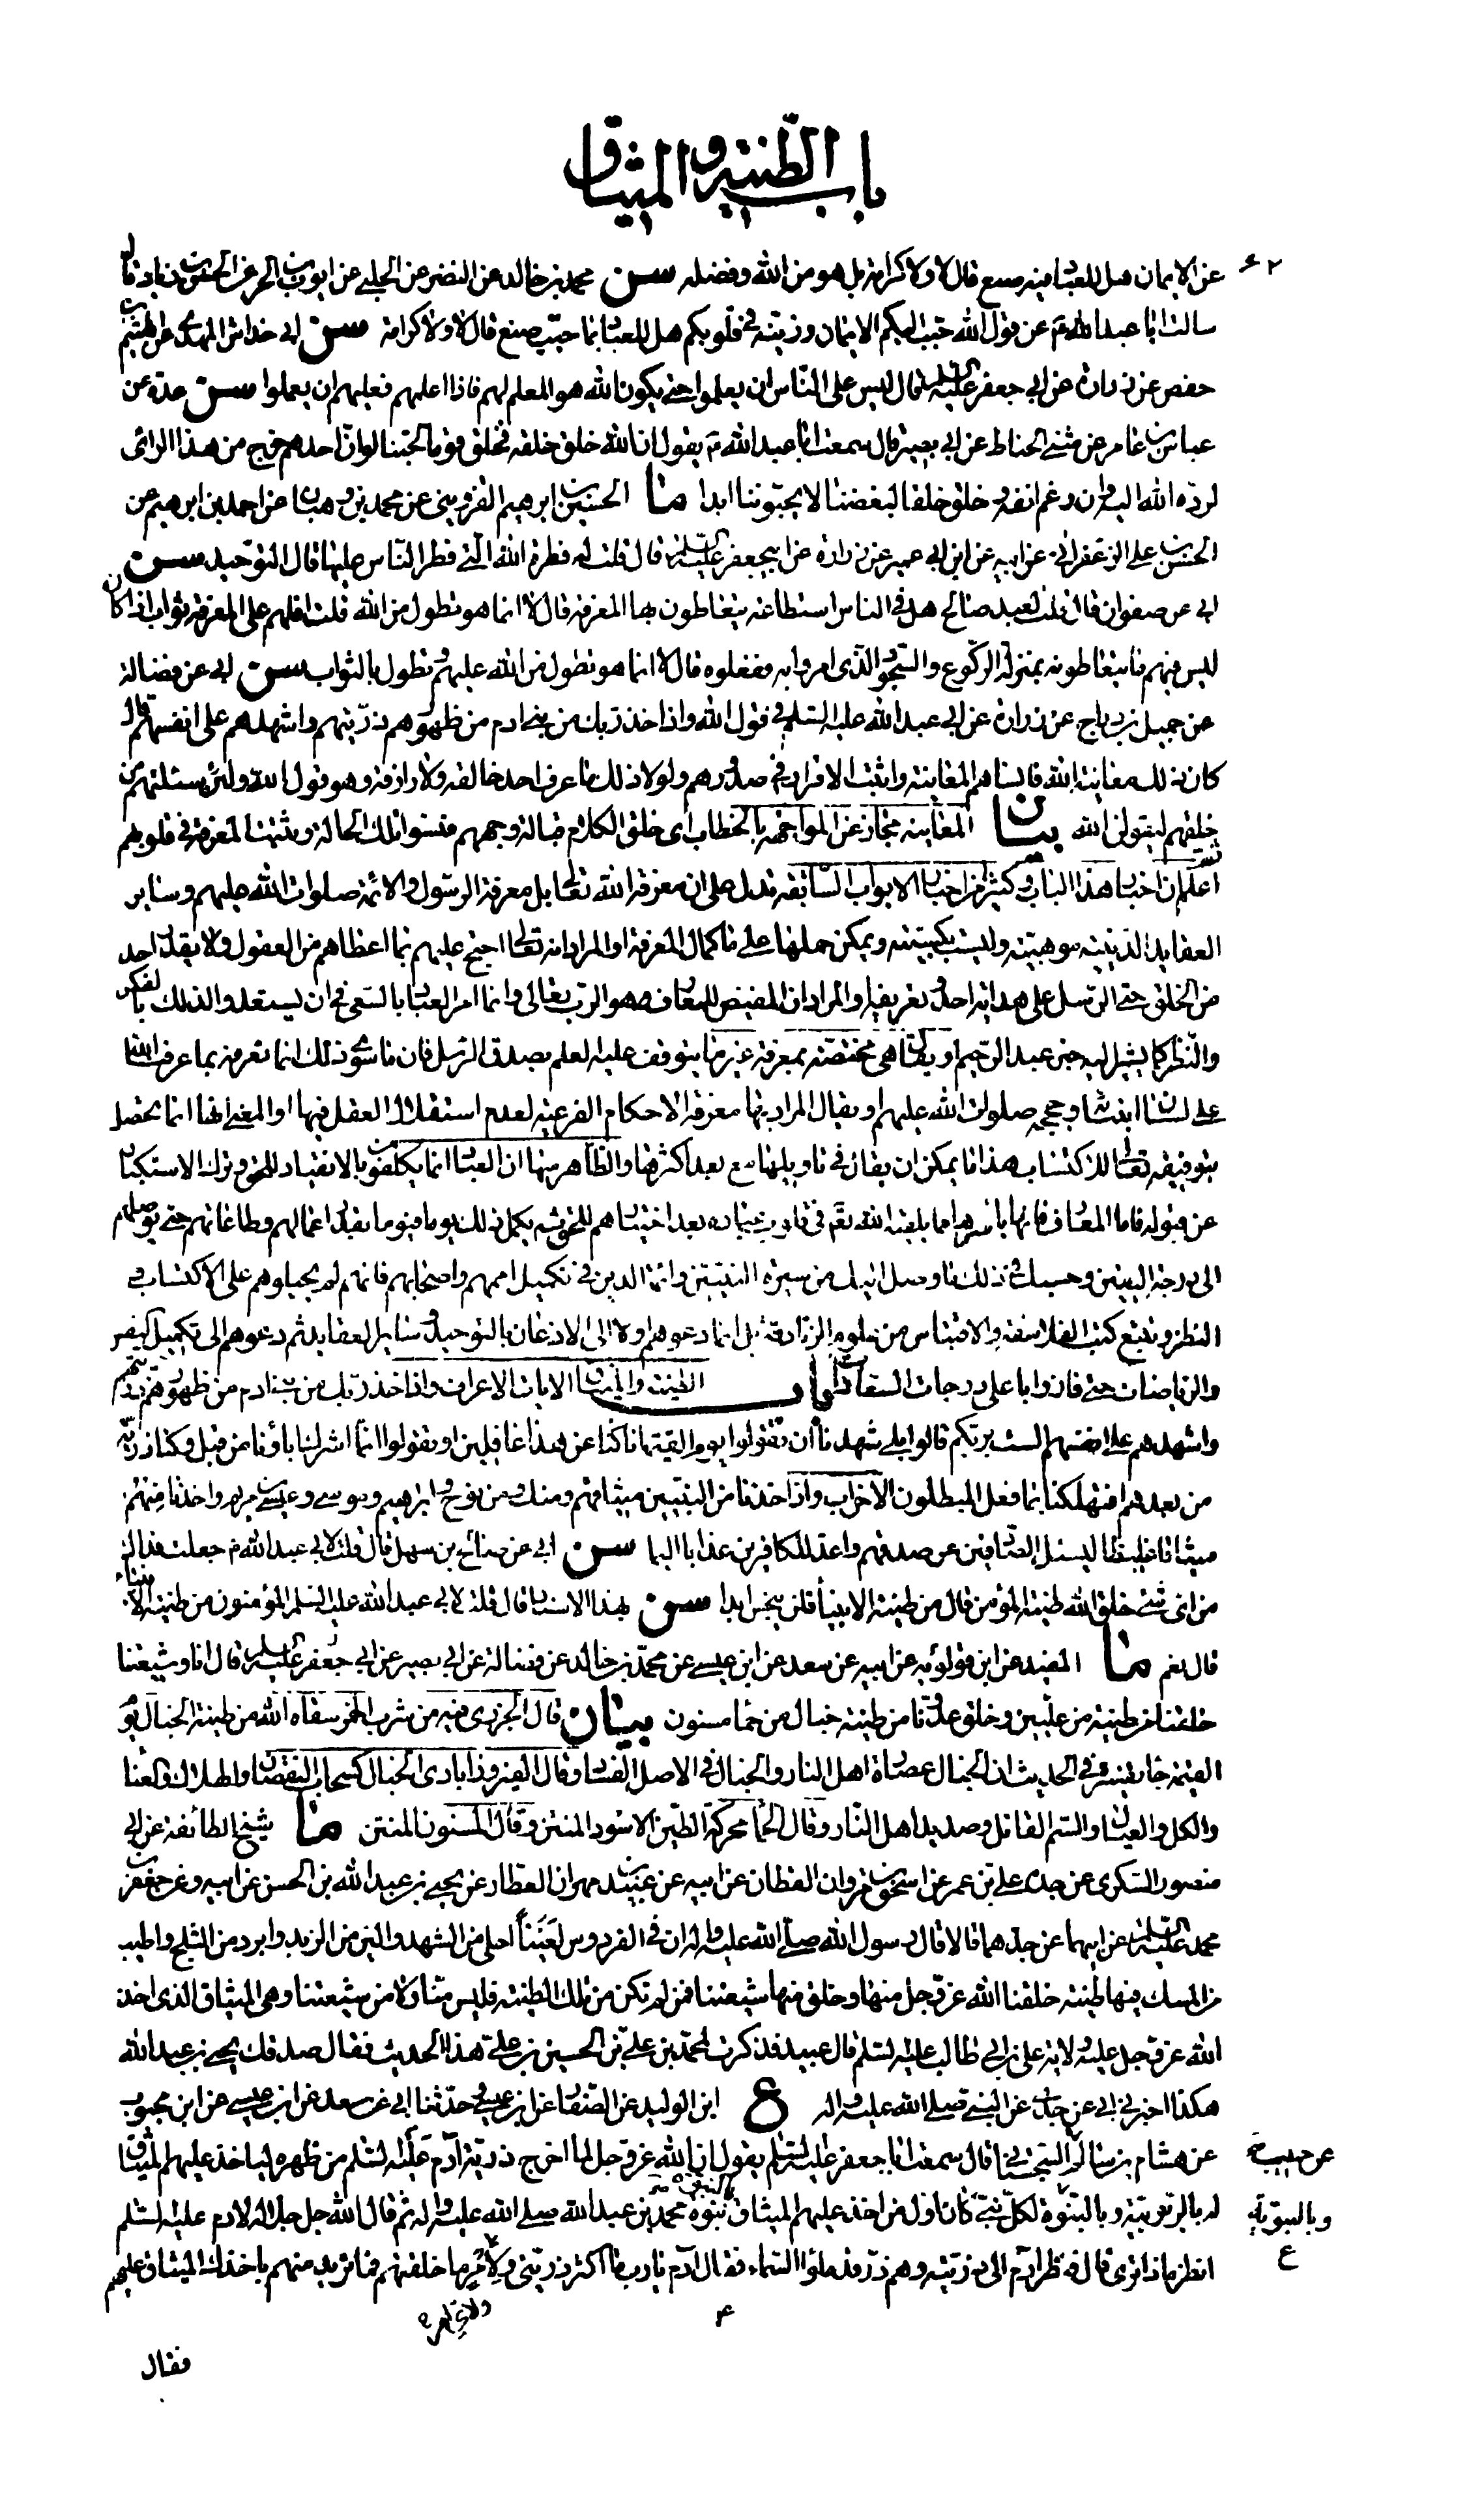 باب الطينة والميثاق
عن الايمان هل للعباد فيه صنع قال لا ولا كرامة بل هو من الله وفضله سن محمد بن خالد عن النضر عن الحلبي عن ايوب بن الحر عن الحسن بن زياد قال
سالت ابا عبد الله ع عن قول الله حبب اليكم الايمان وزينه في قلوبكم هل للعباد بما حبب صنع قال لا ولا كرامة سن ابي خداش المهدي عن الهيثم بن
حفص عن زرارة عن ابي جعفر عليه السلم قال ليس على الناس ان يعلموا حتى يكون الله هو المعلم لهم فاذا اعلمهم فعليهم ان يعلموا سن عدة عن
عباس بن عامر عن مثنى الحناط عن ابي بصير قال سمعت ابا عبد الله ع يقول ان الله خلق خلقه فخلق قوما لحبنا لو ان احدهم خرج من هذا الراى
لرده الله اليه وان رغم انفه وخلق خلقا لبغضنا لا يحبوننا ابدا ما الحسين بن ابرهيم القزويني عن محمد بن وهبان عن احمد بن ابرهيم عن
الحسن بن علي الزعفراني عن ابيه عن ابن ابي عمير عن زرارة عن ابي جعفر عليه السلم قال قلت له فطرة الله التي فطر الناس عليها قال التوحيد سن
ابي عن صفوان قال قلت لعبد صالح هل في الناس استطاعة يتعاطون بها المعرفة قال لا انما هو تطول من الله قلت افلهم على المعرفة ثواب اذا كان
ليس فيهم ما يتعاطونه بمنزلة الركوع والسجود الذى امروا به ففعلوه قال لا انما هو تطول من الله عليهم وتطول بالثواب سن ابي عن فضالة
عن جميل بن دراج عن زرارة عن ابي عبد الله عليه السلم في قول الله واذ اخذ ربك من بني ادم من ظهورهم ذريتهم واشهدهم على انفسهم قال
كان ذلك معاينة الله فانساهم المعاينة واثبت الاقرار في صدورهم ولولا ذلك ما عرف احد خالقه ولا رازقه وهو قول الله ولئن سئلتهم من
خلقهم ليقولن الله بيان المعاينة مجاز عن المواجهة بالخطاب اى خلق الكلام قبالة وجههم فنسوا تلك الحالة وثبتت المعرفة في قلوبهم
اعلم ان اخبار هذا الباب وكثيرا من اخبار الابواب السابقة تدل على ان معرفة الله تعالى بل معرفة الرسول والائمة صلوات الله عليهم وساير
العقايد الدينية موهبية وليست بكسبية ويمكن حملها على كمال المعرفة او المراد انه تعالى احتج عليهم بما اعطاهم من العقول ولا يقدر احد
من الخلق حتى الرسل على هداية احد وتعريفه او المراد ان المفيض للمعارف هو الرب تعالى وانما امر العباد بالسعى في ان يستعدوا لذلك بالفكر
والنظر كما يشير اليه خبر عبد الرحيم او يقال هي مختصة بمعرفة غير ما يتوقف عليه العلم بصدق الرسل فان ما سوى ذلك انما نعرفه بما عرفنا الله
على لسان انبيائه وحججه صلوات الله عليهم او يقال المراد بها معرفة الاحكام الفرعية لعدم استقلال العقل فيها او المعنى انها انما تحصل
بتوفيقه تعالى للاكتساب هذا ما يمكن ان يقال في تاويلها مع بعد اكثرها والظاهر منها ان العباد انما يكلفون بالانقياد للحق وترك الاستكبار
عن قبوله فاما المعارف فانها باسرها مما يلقيه الله تعالى في قلوب عباده بعد اختيارهم للحق ثم يكمل ذلك يوما فيوما بقدر اعمالهم وطاعاتهم حتى يوصلهم
الى درجة اليقين وحسبك في ذلك ما وصل اليك من سيرة النبيين وائمة الدين في تكميل اممهم واصحابهم فانهم لم يحيلوهم على الاكتساب و
النظر وتتبع كتب الفلاسفة والاقتباس من علوم الزنادقة بل انما دعوهم اولا الى الاذعان بالتوحيد وساير العقايد ثم دعوهم الى تكميل النفس
والرياضات حتى فازوا باعلى درجات السعادات باب الطينة والميثاق الايات الاعراف واذ اخذ ربك من بني ادم من ظهورهم ذريتهم
واشهدهم على انفسهم الست بربكم قالوا بلى شهدنا ان تقولوا يوم القيمة انا كنا عن هذا غافلين او تقولوا انما اشرك اباؤنا من قبل وكنا ذرية
من بعدهم افتهلكنا بما فعل المبطلون الاحزاب واذ اخذنا من النبيين ميثاقهم ومنك ومن نوح وابرهيم وموسى وعيسى بن مريم واخذنا منهم
ميثاقا غليظا ليسئل الصادقين عن صدقهم واعد للكافرين عذابا اليما سن ابي عن صالح بن سهل قال قلت لابي عبد الله ع جعلت فداك
من اى شئ خلق الله طينة المؤمن قال من طينة الانبياء فلن ينجس ابدا سن بهذا الاسناد قال قلت لابي عبد الله عليه السلم المؤمنون من طينة الانبياء
قال نعم ما المفيد عن ابن قولويه عن ابيه عن سعد عن ابن عيسى عن محمد بن خالد عن فضالة عن ابي بصير عن ابي جعفر عليه السلم قال انا وشيعتنا
خلقنا من طينة من عليين وخلق عدونا من طينة خبال من حما مسنون بيان قال الجزرى فيه من شرب الخمر سقاه الله من طينة الخبال يوم
القيمة جاء تفسيره في الحديث ان الخبال عصارة اهل النار والخبال في الاصل الفساد وقال الفيروزابادى الخبال كسحاب النقصان والهلاك والعناء
والكل والعيال والسم القاتل وصديد اهل النار وقال الحما محركة الطين الاسود المنتن وقال المسنون المنتن ما شيخ الطائفة عن ابي
منصور السكرى عن جده علي بن عمر عن اسحق بن مروان القطان عن ابيه عن عبيد بن مهران العطار عن يحيى بن عبد الله بن الحسن عن ابيه وعن جعفر بن
محمد عليه السلم عن ابيهما عن جدهما قالا قال رسول الله صلى الله عليه واله ان في الفردوس لعينا احلى من الشهد والين من الزبد وابرد من الثلج واطيب
من المسك فيها طينة خلقنا الله عز وجل منها وخلق منها شيعتنا فمن لم تكن من تلك الطينة فليس منا ولا من شيعتنا وهي الميثاق الذى اخذ
الله عز وجل عليه ولاية علي بن ابي طالب عليه السلم قال عبيد فذكرت لمحمد بن علي بن الحسين بن علي هذا الحديث فقال صدقك يحيى بن عبد الله
هكذا اخبرني ابي عن جدى عن النبي صلى الله عليه واله ع ابن الوليد عن الصفار عن ابن عيسى وحدثنا ابي عن سعد عن ابن عيسى عن ابن محبوب
عن هشام بن سالم السجستاني قال سمعت ابا جعفر عليه السلم يقول ان الله عز وجل لما اخرج ذرية آدم عليه السلم من ظهره لياخذ عليهم الميثاق
عن حبيب
له بالربوبية وبالنبوة لكل نبي كان اول من اخذ عليهم الميثاق نبوة محمد بن عبد الله صلى الله عليه واله ثم قال الله جل جلاله لادم عليه السلم
وبالنبوة
ع
انظر ماذا ترى قال فنظر آدم الى ذريته وهم ذر قد ملئوا السماء فقال آدم يا رب ما اكثر ذريتي ولامر ما خلقتهم فما تريد منهم باخذك الميثاق عليهم
فقال